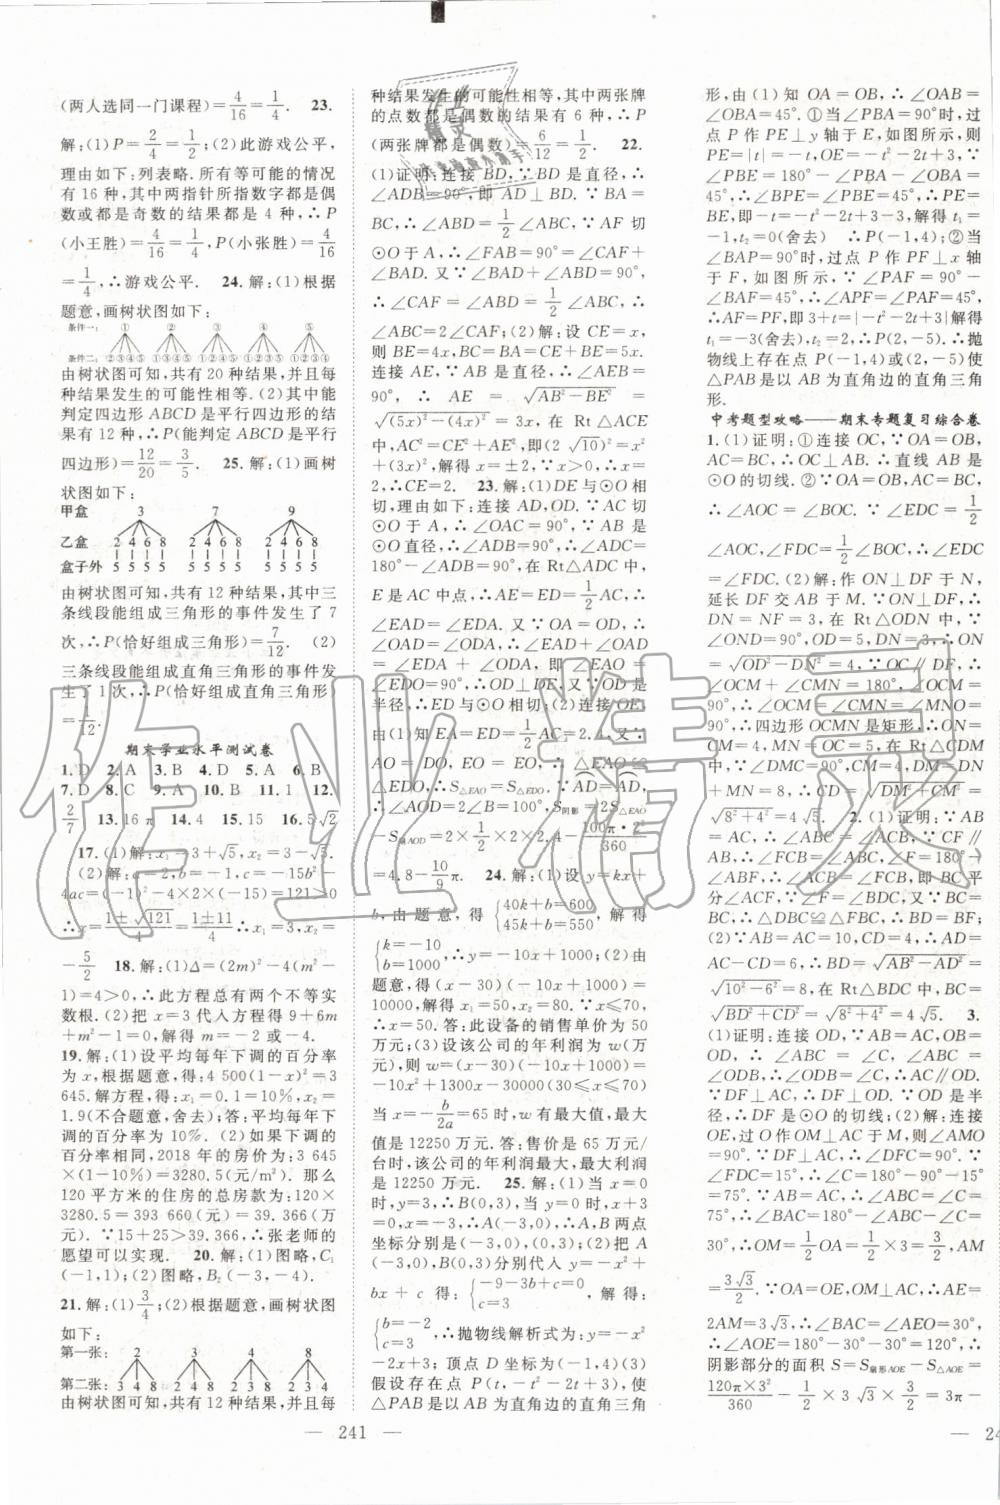 (两人选同一门课程)=4/16=1/4. 23.
解:(1)P=2/4=1/2;(2)此游戏公平,
理由如下:列表略.所有等可能的情况
有16种,其中两指针所指数字都是偶
数或都是奇数的结果都是4种,∴P
(小王胜)=4/16=1/4,P(小张胜)=4/16
=1/4,∴游戏公平. 24.解:(1)根据
题意,画树状图如下:
条件一: ① ② ③ ④ ⑤
条件二:②③④⑤ ①③④⑤ ①②④⑤ ①②③⑤ ①②③④
由树状图可知,共有20种结果,并且每
种结果发生的可能性相等.(2)其中能
判定四边形ABCD是平行四边形的结
果有12种,∴P(能判定ABCD是平行
四边形)=12/20=3/5. 25.解:(1)画树
状图如下:
甲盒 3 7 9
乙盒 2 4 6 8 2 4 6 8 2 4 6 8
盒子外 5 5 5 5 5 5 5 5 5 5 5 5
由树状图可知,共有12种结果,其中三
条线段能组成三角形的事件发生了7
次,∴P(恰好组成三角形)=7/12. (2)
三条线段能组成直角三角形的事件发
生了1次,∴P(恰好组成直角三角形)
=1/12.
期末学业水平测试卷
1.D 2.A 3.B 4.D 5.A 6.B
7.D 8.C 9.A 10.B 11.1 12.
2/7 13.16π 14.4 15.15 16.5√2
17.(1)解:x₁=3+√5,x₂=3-√5.
(2)解:a=2,b=-1,c=-15b²-
4ac=(-1)²-4×2×(-15)=121>0
∴x=(1±√121)/4=(1±11)/4∴x₁=3,x₂=
-5/2 18.解:(1)Δ=(2m)²-4(m²-
1)=4>0,∴此方程总有两个不等实
数根.(2)把x=3代入方程得9+6m
+m²-1=0,解得m=-2或m=-4.
19.解:(1)设平均每年下调的百分率
为x,根据题意,得:4 500(1-x)²=3
645.解方程得:x₁=0.1=10%,x₂=
1.9(不合题意,舍去);答:平均每年下
调的百分率为10%.(2)如果下调的
百分率相同,2018年的房价为:3 645
×(1-10%)=3280.5(元/m²).那么
120平方米的住房的总房款为:120×
3280.5=393 660(元)=39.366(万
元).∵15+25>39.366,∴张老师的
愿望可以实现. 20.解:(1)图略,C₁
(-1,-3);(2)图略,B₂(-3,-1).
21.解:(1)3/4;(2)根据题意,画树状图
如下:
第一张: 2 3 4 8
第二张: 3 4 8 2 4 8 2 3 8 2 3 4
由树状图可知,共有12种结果,并且每
种结果发生的可能性相等,其中两张牌
的点数都是偶数的结果有6种,∴P
(两张牌都是偶数)=6/12=1/2. 22.
(1)证明:连接BD,∵BD是直径,∴
∠ADB=90°,即AD⊥BD.∵BA=
BC,∴∠ABD=1/2∠ABC,∵AF切
⊙O于A,∴∠FAB=90°=∠CAF+
∠BAD.又∵∠BAD+∠ABD=90°,
∴∠CAF=∠ABD=1/2∠ABC,∴
∠ABC=2∠CAF;(2)解:设CE=x,
则BE=4x,BC=CE+BE=5x.
连接AE,∵AB是直径,∴∠AEB=
90°,∴AE=√(AB²-BE²)=
√((5x)²-(4x)²)=3x,在Rt△ACE
中,AC²=CE²+AE²,即(2√10)²=x²
+(3x)²,解得x=±2,∵x>0,∴x=
2,∴CE=2. 23.解:(1)DE与⊙O相
切,理由如下:连接AD,OD.∵AC切
⊙O于A,∴∠OAC=90°,∵AB是
⊙O直径,∴∠ADB=90°,∴∠ADC=
180°-∠ADB=90°.在Rt△ADC中,
E是AC中点,∴AE=DE=1/2AC,∴
∠EAD=∠EDA.又∵OA=OD,∴
∠OAD=∠ODA,∴∠EAD+∠OAD
=∠EDA+∠ODA,即∠EAO=
∠EDO=90°,∴OD⊥DE,又∵OD是半
径,∴ED与⊙O相切;(2)连接OE,
由(1)知EA=ED=1/2AC=2.4,又∵
AO=DO,EO=EO,∴△EAO≌
△EDO,∴S△EAO=S△EDO,∵AD=AD,
∴∠AOD=2∠B=100°,S阴影=2S△EAO
-S扇AOD=2×1/2×2×2.4-100π·2²/360
=4.8-10/9π. 24.解:(1)设y=kx+
b,由题意,得{40k+b=600 45k+b=550,解得
{k=-10 b=1000,∴y=-10x+1000;(2)由
题意,得(x-30)(-10x+1000)=
10000,解得x₁=50,x₂=80.∵x≤70,
∴x=50.答:此设备的销售单价为50
万元;(3)设该公司的年利润为w(万
元),则w=(x-30)(-10x+1000)=
-10x²+1300x-30000(30≤x≤70)
当x=-b/2a=65时,w有最大值,最大
值是12250万元.答:售价是65万元/
台时,该公司的年利润最大,最大利润
是12250万元. 25.解:(1)当x=0
时,y=3,∴B(0,3),当y=0时,x+3
=0,x=-3,∴A(-3,0),∴A,B两点
坐标分别是(-3,0),(0,3);(2)把A
(-3,0),B(0,3)分别代入y=-x²+
bx+c得:{-9-3b+c=0 c=3,解得:
{b=-2 c=3,∴抛物线解析式为:y=-x²
-2x+3;顶点D坐标为(-1,4);(3)
假设存在点P(t,-t²-2t+3),使
△PAB是以AB为直角边的直角三角
形,由(1)知OA=OB,∴∠OAB=
∠OBA=45°.①当∠PBA=90°时,过
点P作PE⊥y轴于E,如图所示,则
∠PBE=180°-∠PBA-∠ABO=
45°,∴∠BPE=∠PBE=45°,∴PE=
BE,即-t=-t²-2t+3-3,解得t₁=
-1,t₂=0(舍去) ∴P(-1,4);②当
∠BAP=90°时,过点P作PF⊥x轴
于F,如图所示,∵∠PAF=90°-
∠BAF=45°,∴∠APF=∠PAF=45°,
∴PF=AF,即3+t=-(-t²-2t+3)解得
t₁=-3(舍去),t₂=2,∴P(2,-5),∴抛
物线上存在点P(-1,4)或(2,-5)使
△PAB是以AB为直角边的直角三角
形.
中考题型攻略——期末专题复习综合卷
1.(1)证明:①连接OC,∵OA=OB,
AC=BC,∴OC⊥AB,∴直线AB是
⊙O的切线.②∵OA=OB,AC=BC,
∴∠AOC=∠BOC.∵∠EDC=1/2
∠AOC,∠FDC=1/2∠BOC,∴∠EDC
=∠FDC.(2)解:作ON⊥DF于N,
延长DF交AB于M.∵ON⊥DF,∴
DN=NF=3,在Rt△ODN中,∵
∠OND=90°,OD=5,DN=3,∴ON
=√(OD²-DN²)=4,∵OC∥DF,∴
∠OCM+∠CMN=180°,∠OCM=
90°,∴∠OCM=∠CMN=∠MNO=
90°,∴四边形OCMN是矩形,∴ON=
CM=4,MN=OC=5,在Rt△CDM
中,∵∠DMC=90°,CM=4,DM=DN
+MN=8,∴CD=√(DM²+CM²)=
√(8²+4²)=4√5. 2.(1)证明:∵AB
=AC,∴∠ABC=∠ACB,∵CF∥
AB,∴∠FCB=∠ABC,∴∠ACB=
∠FCB,∵∠DBC=∠A,∠F=180°-
∠A,∴∠F=180°-∠BDC,即BC平
分∠DCF,∴△DBC≌△FBC,∴BD=BF;
(2)∵AB=AC=10,CD=4,∴AD=
10-4=6,∴BD=√(AB²-AD²)=
√(10²-6²)=8,在Rt△BDC中,BC=
√(BD²+CD²)=√(8²+4²)=4√5. 3.
(1)证明:连接OD,∵AB=AC,OB=
OD,∴∠ABC=∠C,∠ABC=
∠ODB,∴∠ODB=∠C,∴AC∥OD.
∵DF⊥AC,∴DF⊥OD.∵OD是半
径,∴DF是⊙O的切线;(2)解:连接
OE,过O作OM⊥AC于M,则∠AMO
=90°.∵DF⊥AC,∴∠DFC=90°.∵
∠FDC=15°,∴∠C=180°-90°-15°
=75°.∵AB=AC,∴∠ABC=∠C=
75°,∴∠BAC=180°-∠ABC-∠C=
30°,∴OM=1/2OA=1/2×3=3/2,AM
=3√3/2.∵OA=OE,OM⊥AC,∴AE=
2AM=3√3,∴∠BAC=∠AEO=30°,
∴∠AOE=180°-30°-30°=120°,∴
阴影部分的面积S=S扇形AOE-S△AOE=
120π×3²/360-1/2×3√3×3/2=3π-
— 241 —
— 24
作业精灵